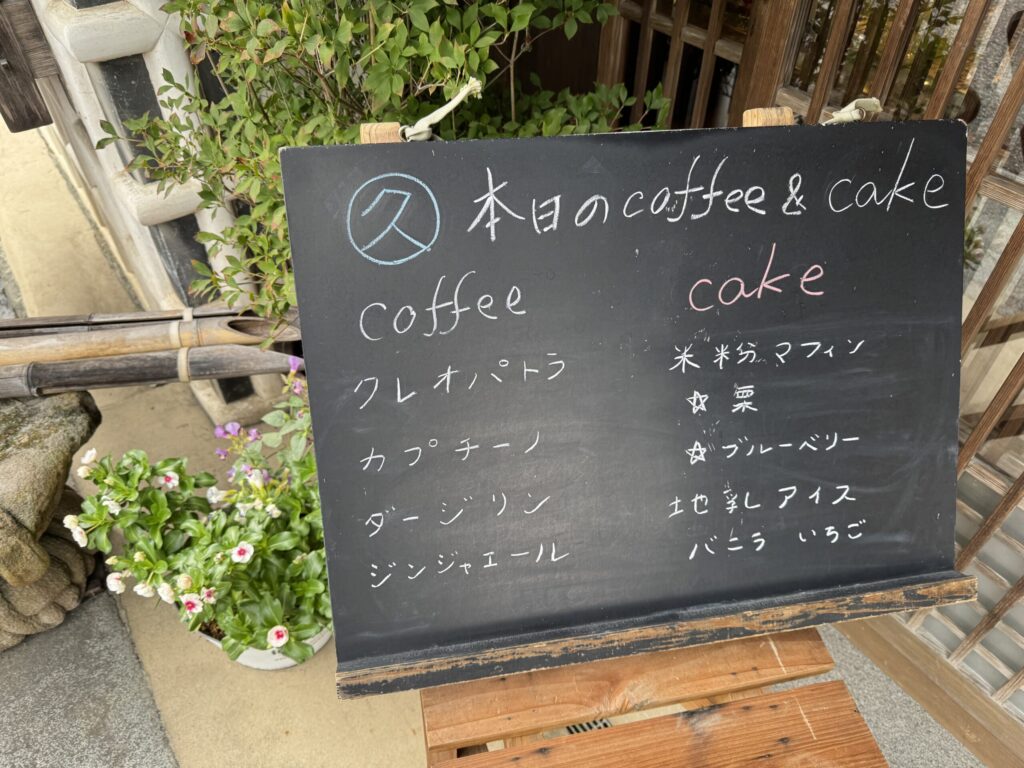 久 本日のcoffee & cake
coffee
クレオパトラ
カプチーノ
ダージリン
ジンジャエール
cake
米粉マフィン
☆栗
☆ブルーベリー
地乳アイス
バニラ いちご